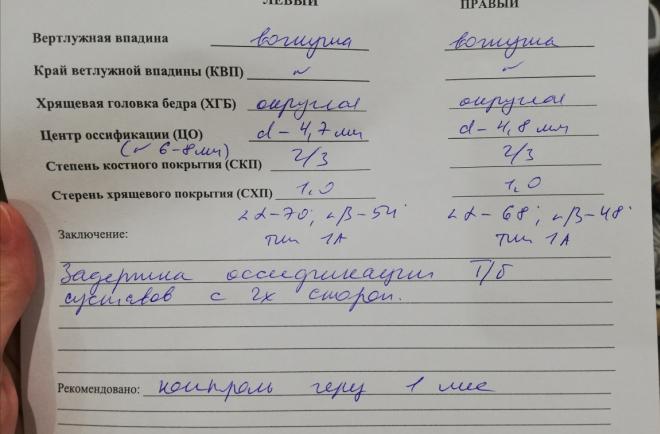 ЛЕВЫЙ ПРАВЫЙ
Вертлужная впадина вогнутая вогнутая
Край ветлужной впадины (КВП) ~ ~
Хрящевая головка бедра (ХГБ) округлая округлая
Центр оссификации (ЦО) d - 4,7 мм d - 4,8 мм
(~ 6-8 мм)
Степень костного покрытия (СКП) 2/3 2/3
Стерень хрящевого покрытия (СХП) 1,0 1,0
∠α-70°; ∠β-54° ∠α-68°; ∠β-48°
Заключение: тип 1А тип 1А
Задержка оссификации Т/б
суставов с 2х сторон.
Рекомендовано: контроль через 1 мес